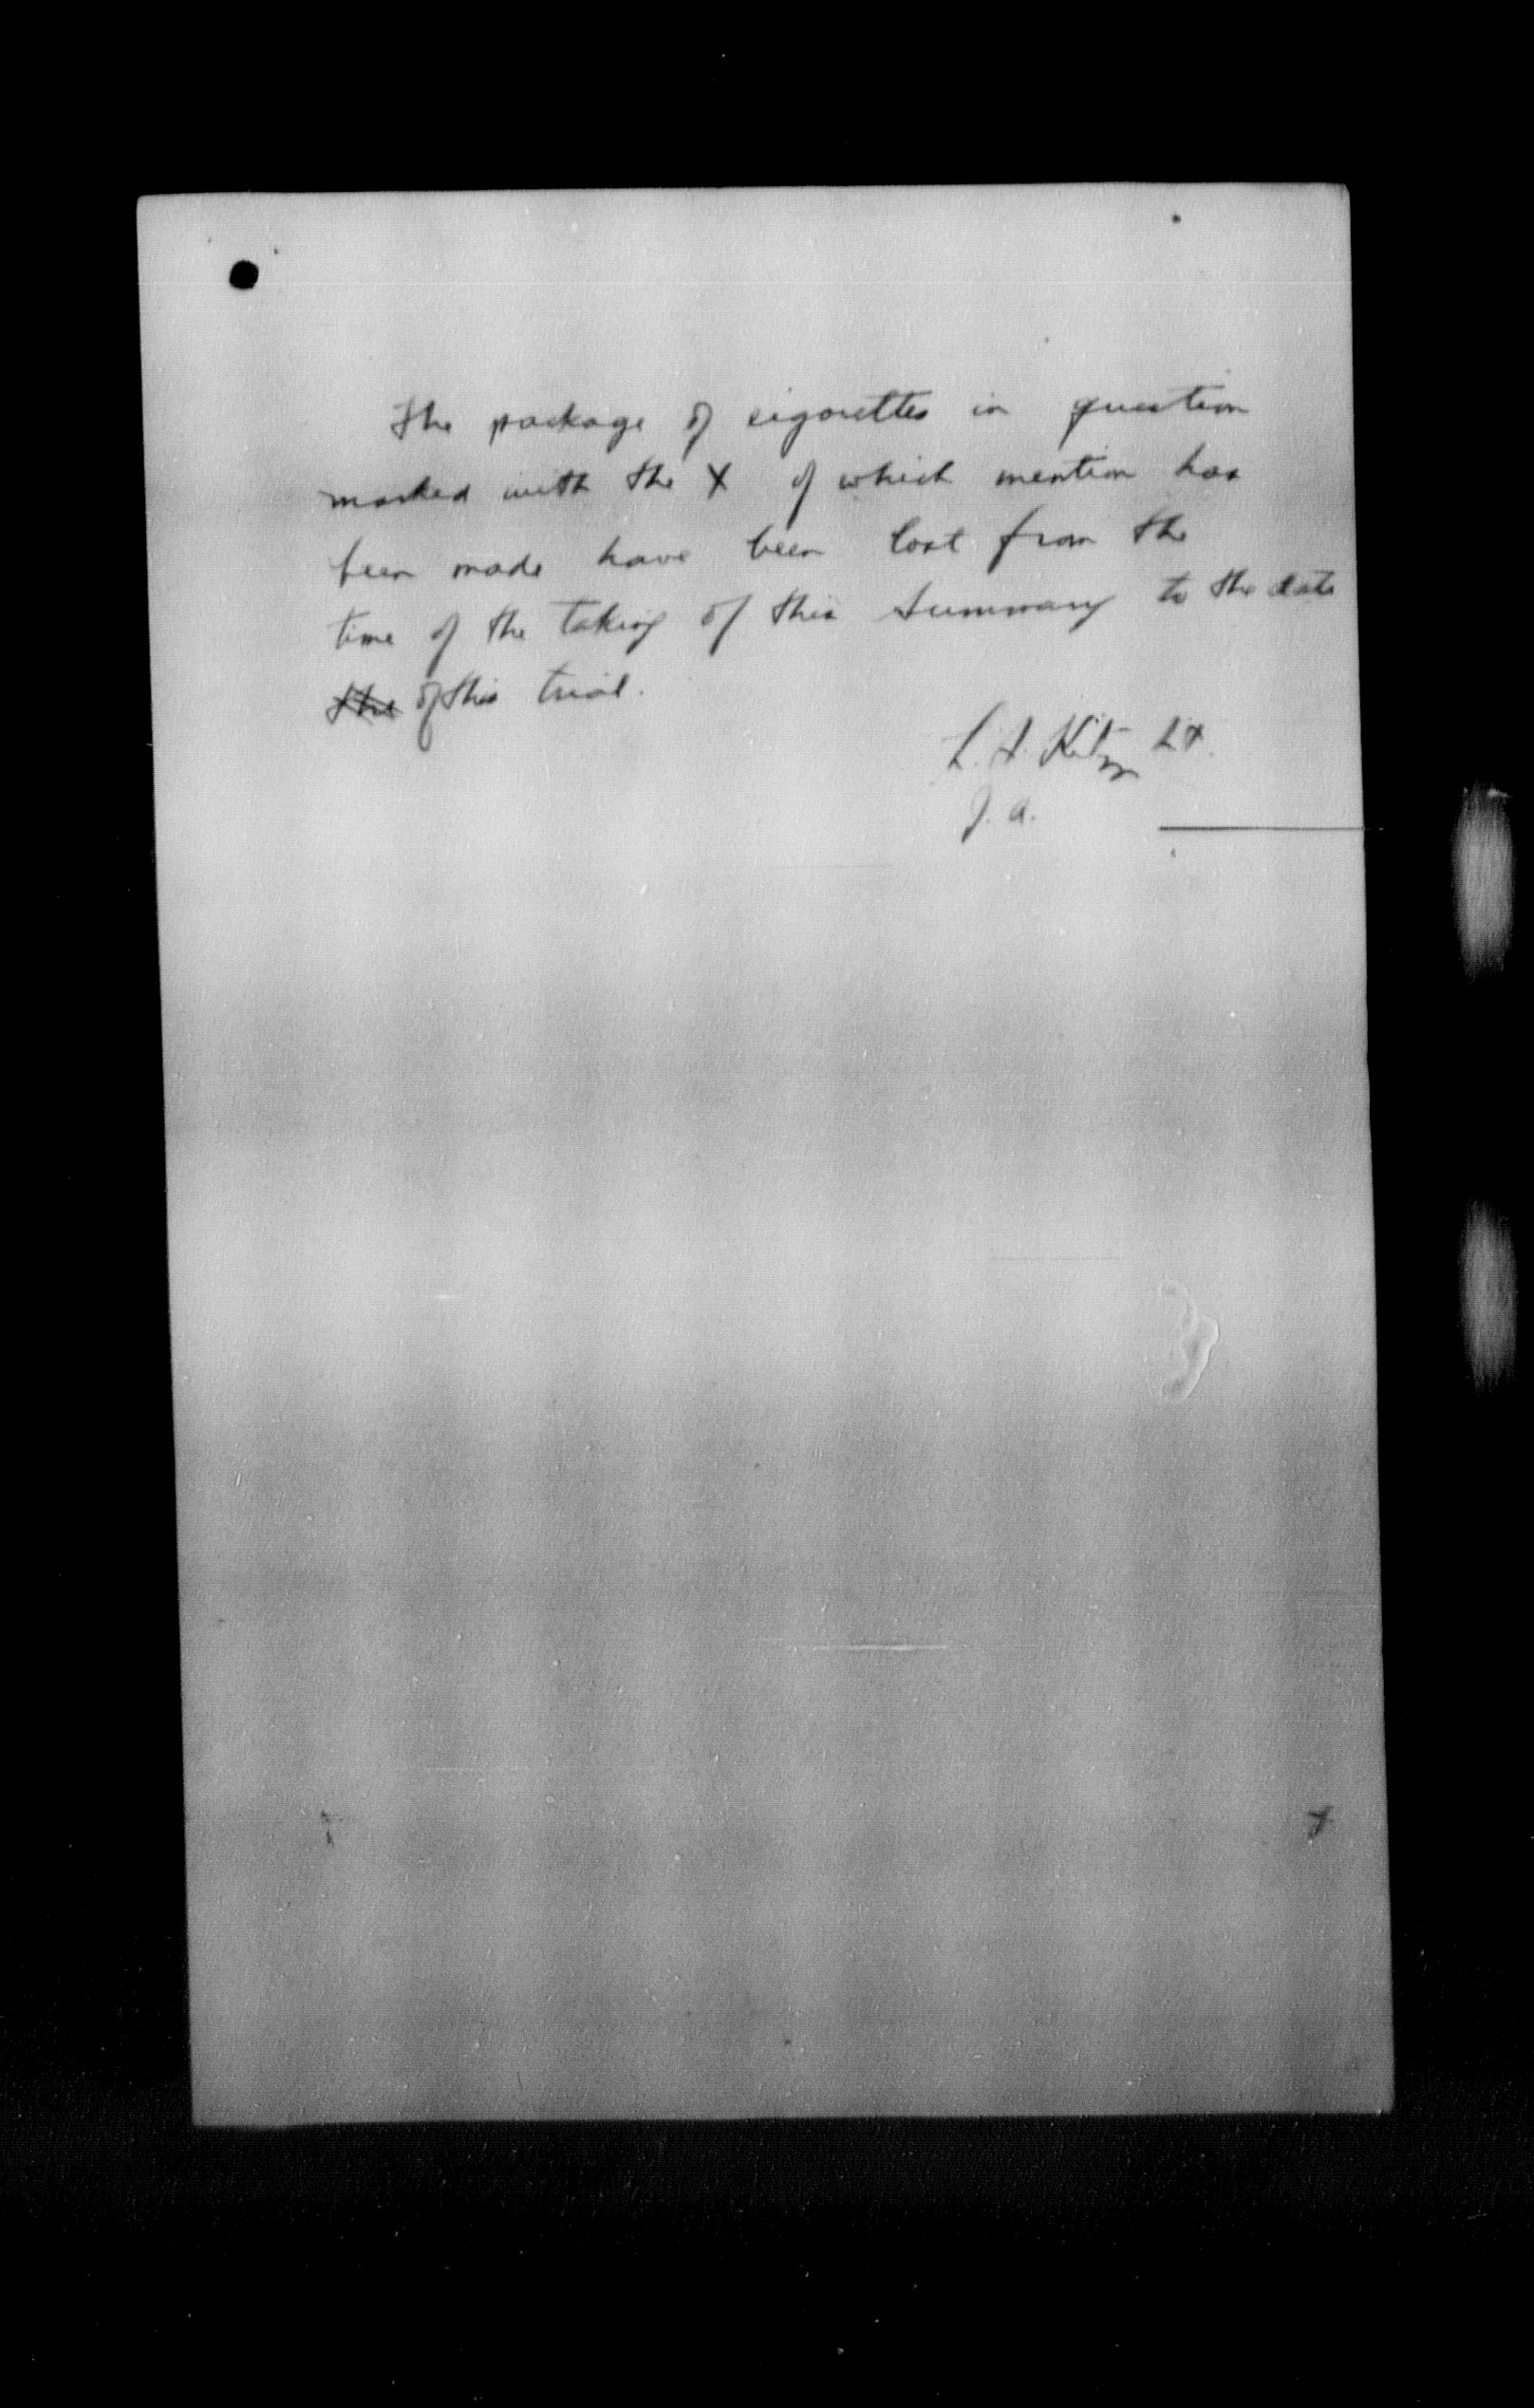 The package of cigarettes in question
marked with the X of which mention has
been made have been lost from the
time of the taking of this Summary to the date
the of this trial.
Lt.
J. A.